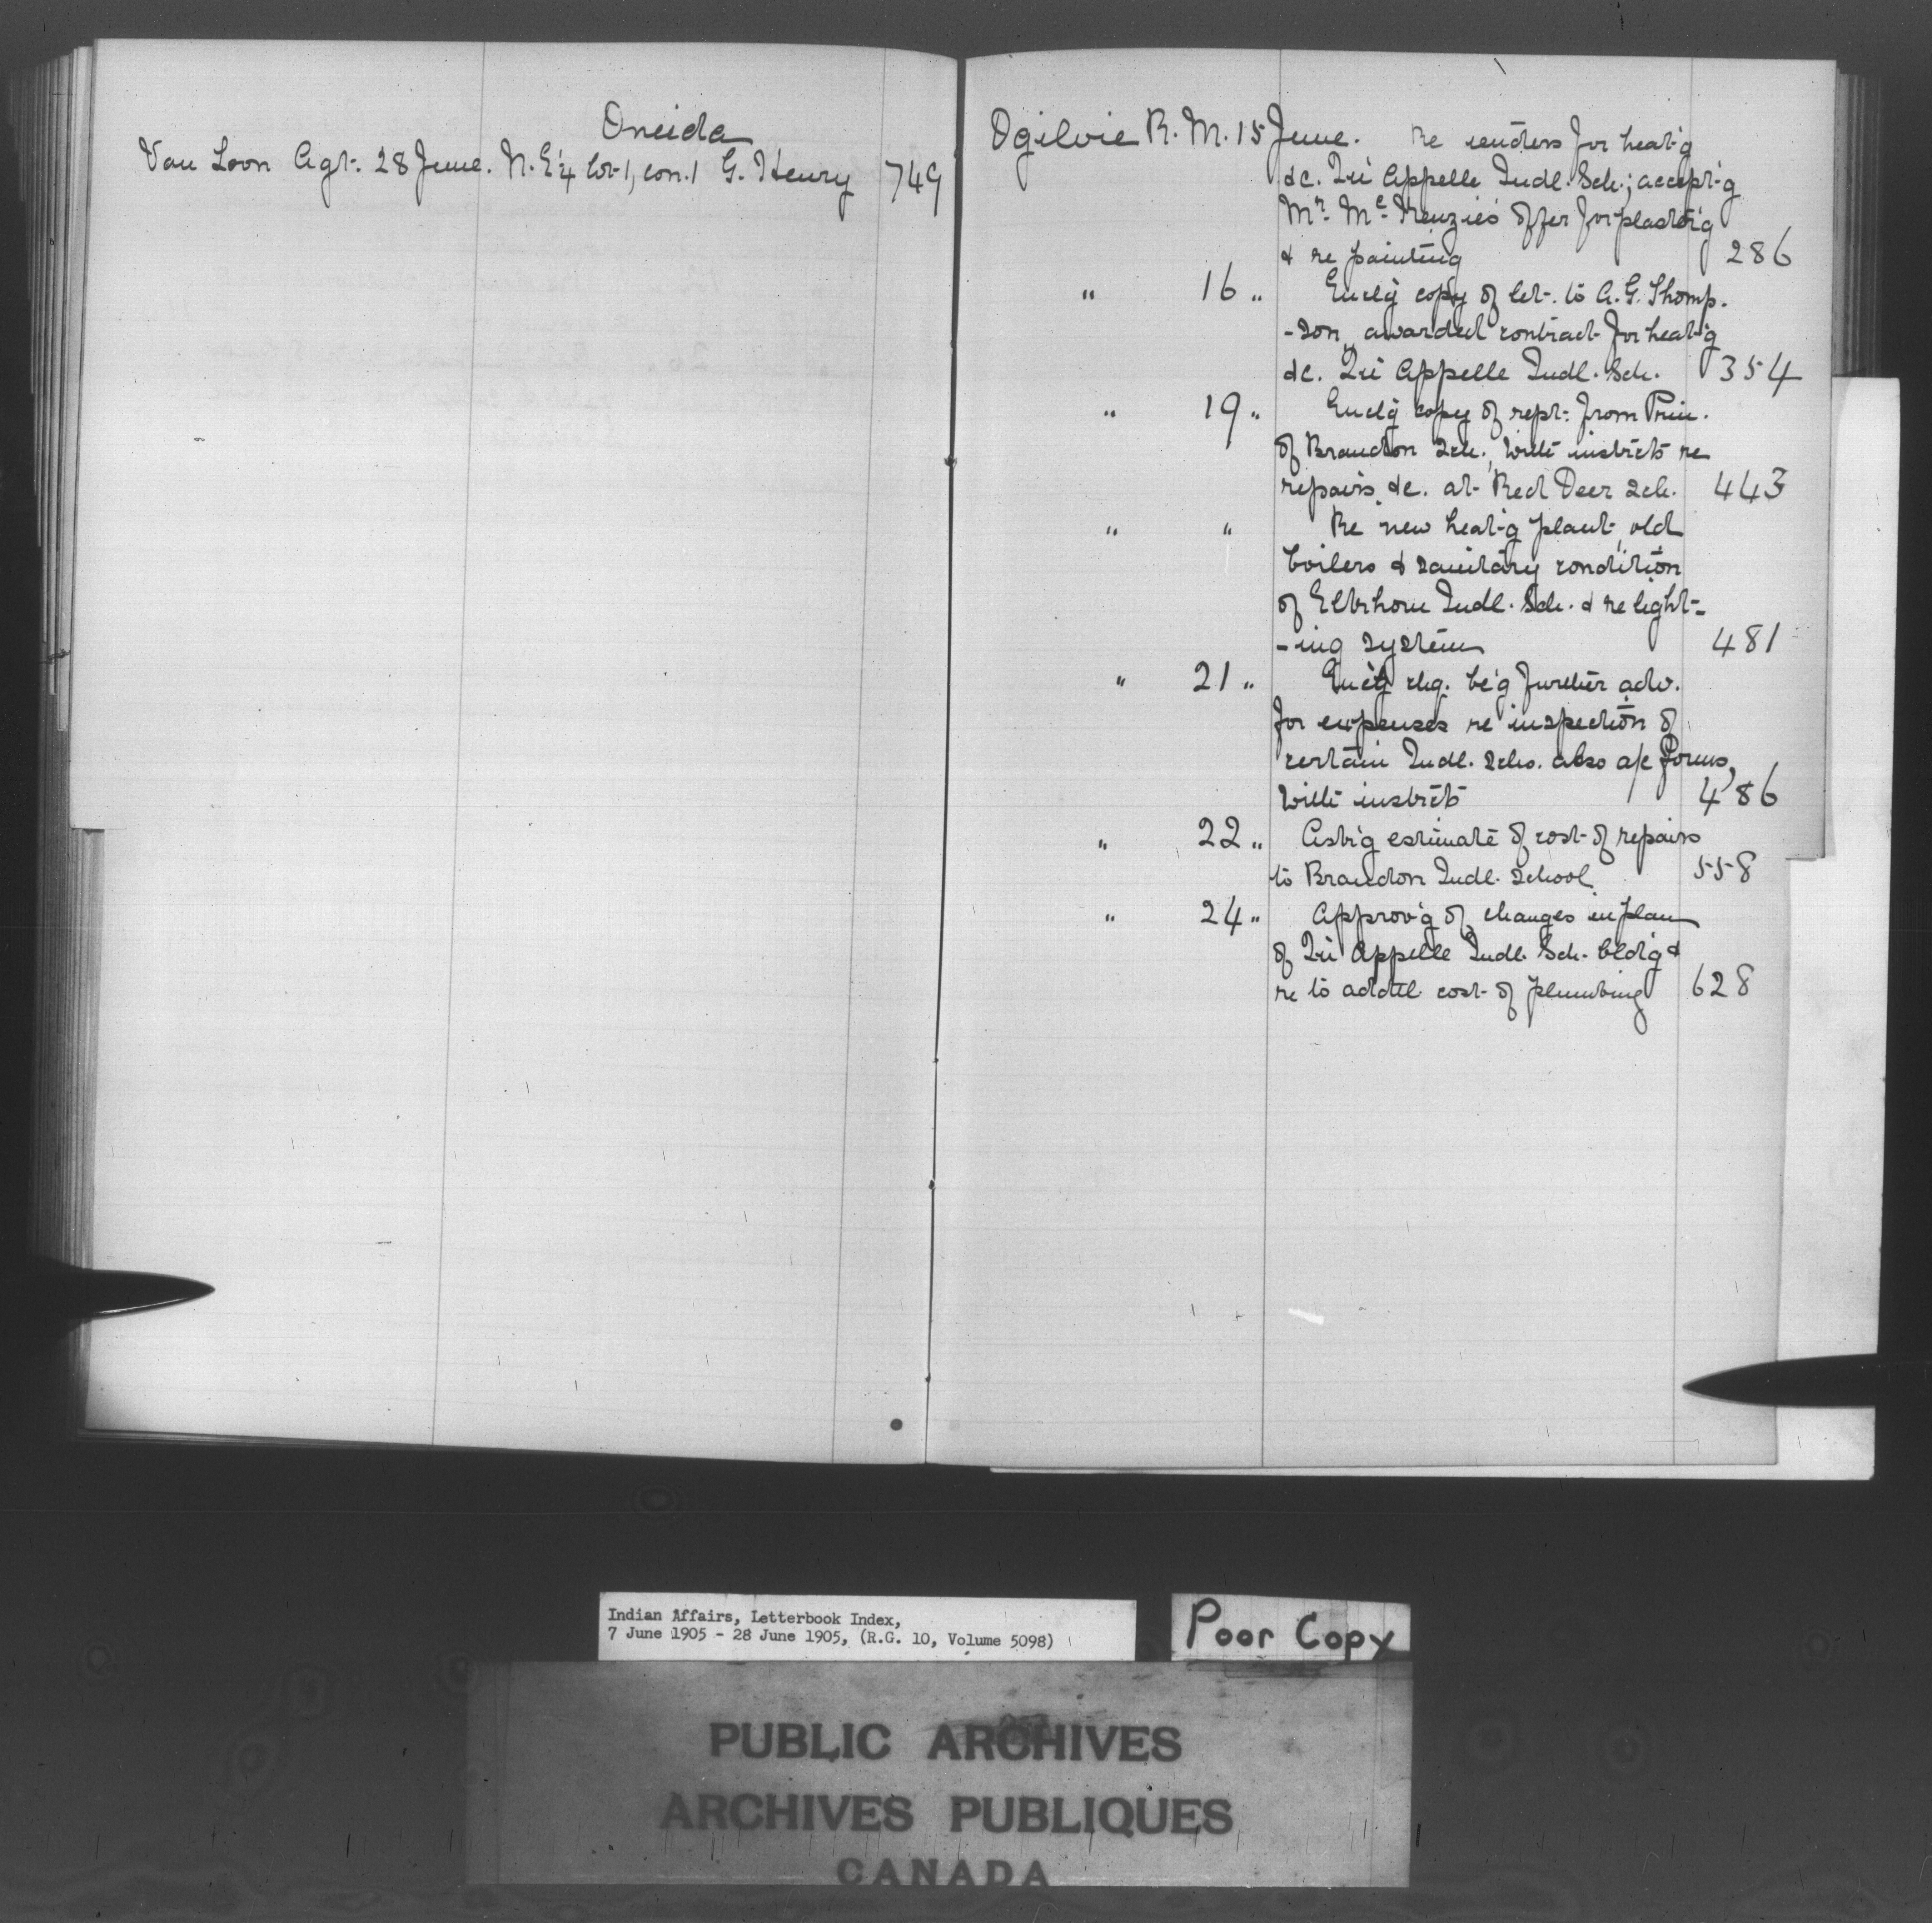 Oneida
Van Loon Agt. 28 June. N.E¼ lot 1, con. 1 G. Henry 749
Ogilvie R. M. 15 June. Re tenders for heat'g
&c. Qu'Appelle Indl. Sch.; accept'g
Mr. McKenzie's offer for plaster'g
& re painting 286
" 16 " Encl'g copy of let. to A. G. Thomp-
-son, awarded contract for heat'g
&c. Qu'Appelle Indl. Sch. 354
" 19 " Encl'g copy of rept. from Prin.
of Brandon Sch., with instrcts re
repairs &c. at Red Deer Sch. 443
" " Re new heat'g plant, old
boilers & sanitary condition
of Elkhorn Indl. Sch. & re light-
-ing system 481
" 21 " Enc'g chq. be'g further adv.
for expenses re inspection of
certain Indl. Schs. also a/c forms,
with instrcts 486
" 22 " Ask'g estimate of cost of repairs
to Brandon Indl. School 558
" 24 " Approv'g of changes in plan
of Qu'Appelle Indl. Sch. bldg &
re to addtl. cost of plumbing 628
Indian Affairs, Letterbook Index,
7 June 1905 - 28 June 1905, (R.G. 10, Volume 5098)
Poor Copy
PUBLIC ARCHIVES
ARCHIVES PUBLIQUES
CANADA